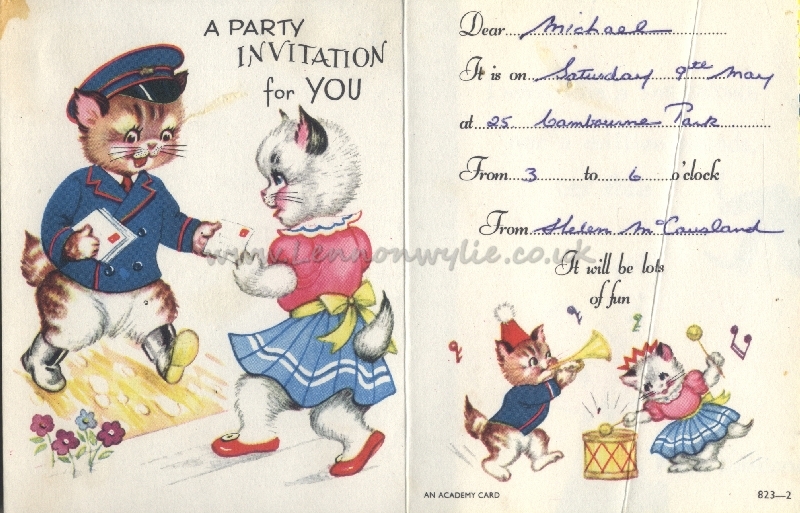 A PARTY
INVITATION
for YOU
www.Lennonwylie.co.uk
Dear Michael
It is on Saturday 9th May
at 25 Cambourne Park
From 3 to 6 o'clock
From Helen McCausland
It will be lots
of fun
AN ACADEMY CARD
823—2